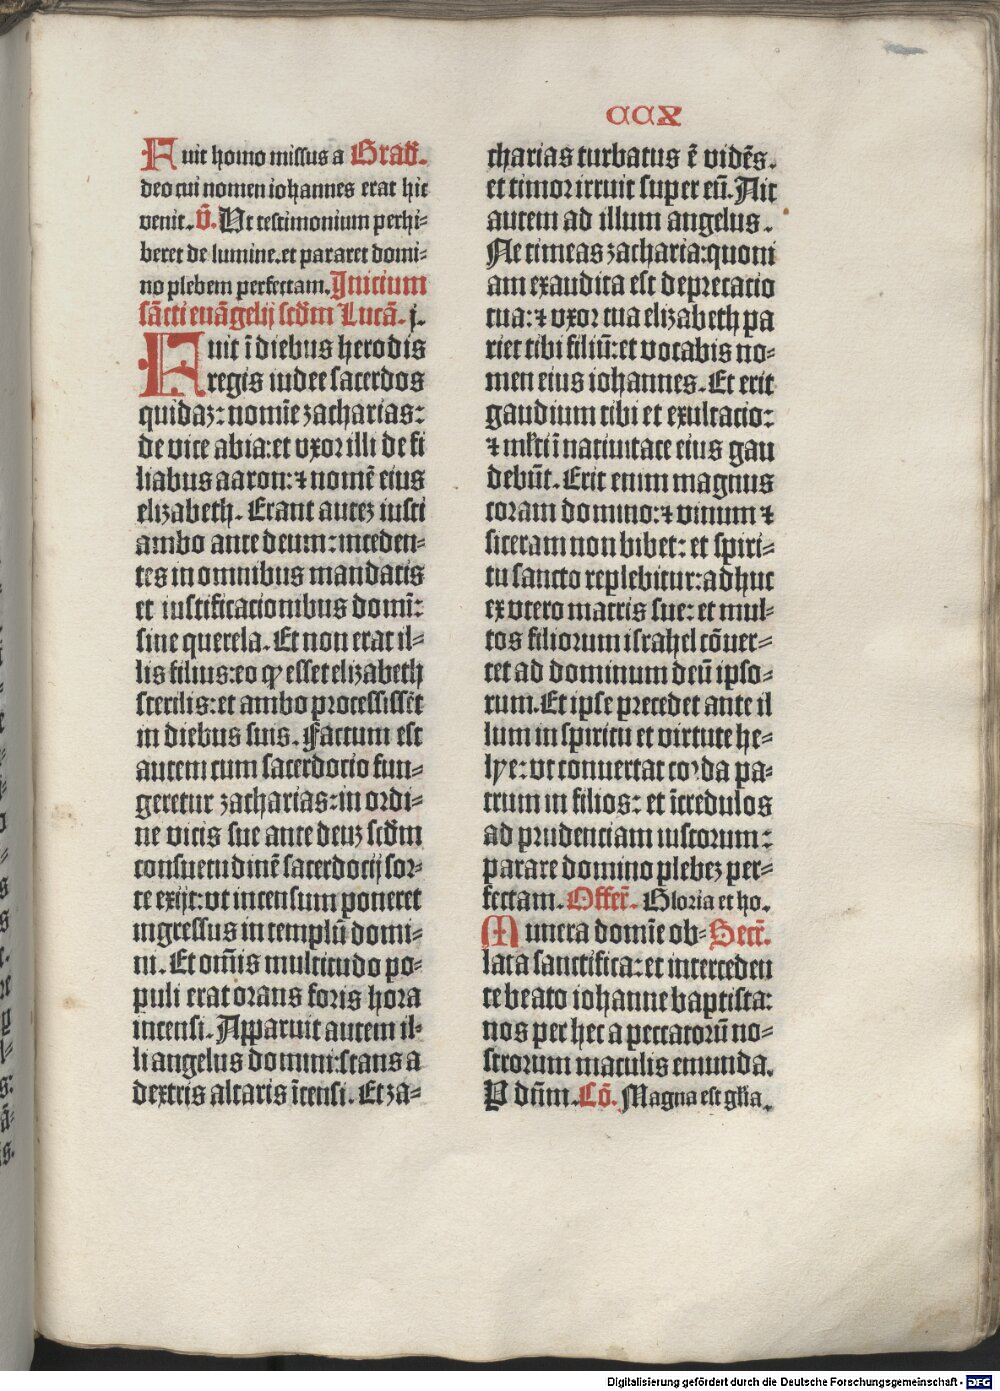 CCX
Fuit homo missus a Grad̃.
deo cui nomen iohannes erat hic
venit. v̄. Ut testimonium perhi⸗
beret de lumine. et pararet domi⸗
no plebem perfectam. Inicium
sācti euāgelij scd̄m Lucā. j.
Fuit ī diebus herodis
regis iudee sacerdos
quidaz: nomīe zacharias:
de vice abia: et vxor illi de fi
liabus aaron: ⁊ nomē eius
elizabeth. Erant autez iusti
ambo ante deum: inceden⸗
tes in omnibus mandatis
et iustificacionibus domī:
sine querela. Et non erat il⸗
lis filius: eo ꝙ esset elizabeth
sterilis: et ambo processissēt
in diebus suis. Factum est
autem cum sacerdocio fun⸗
geretur zacharias: in ordi⸗
ne vicis sue ante deuz scd̄m
consuetudinē sacerdocij sor⸗
te exijt: vt incensum poneret
ingressus in templū domi⸗
ni. Et om̄is multitudo po⸗
puli erat orans foris hora
incensi. Apparuit autem il⸗
li angelus domini: stans a
dextris altaris īcensi. Et za⸗
charias turbatus ē vidēs.
et timor irruit super eū. Ait
autem ad illum angelus.
Ne timeas zacharia: quoni
am exaudita est deprecacio
tua: ⁊ vxor tua elizabeth pa
riet tibi filiū: et vocabis no⸗
men eius iohannes. Et erit
gaudium tibi et exultacio:
⁊ ml̄ti ī natiuitate eius gau
debūt. Erit enim magnus
coram domino: ⁊ vinum ⁊
siceram non bibet: et spiri⸗
tu sancto replebitur: adhuc
ex vtero matris sue: et mul⸗
tos filiorum israhel cōuer⸗
tet ad dominum deū ipso⸗
rum. Et ipse precedet ante il
lum in spiritu et virtute he⸗
lye: vt conuertat corda pa⸗
trum in filios: et īcredulos
ad prudenciam iustorum:
parare domino plebez per⸗
fectam. Offer̄. Gloria et ho.
Munera domīe ob⸗ Secr̄.
lata sanctifica: et interceden
te beato iohanne baptista:
nos per hec a peccatorū no⸗
strorum maculis emunda.
P dūm. Cō. Magna est gl̄ia.
Digitalisierung gefördert durch die Deutsche Forschungsgemeinschaft - DFG